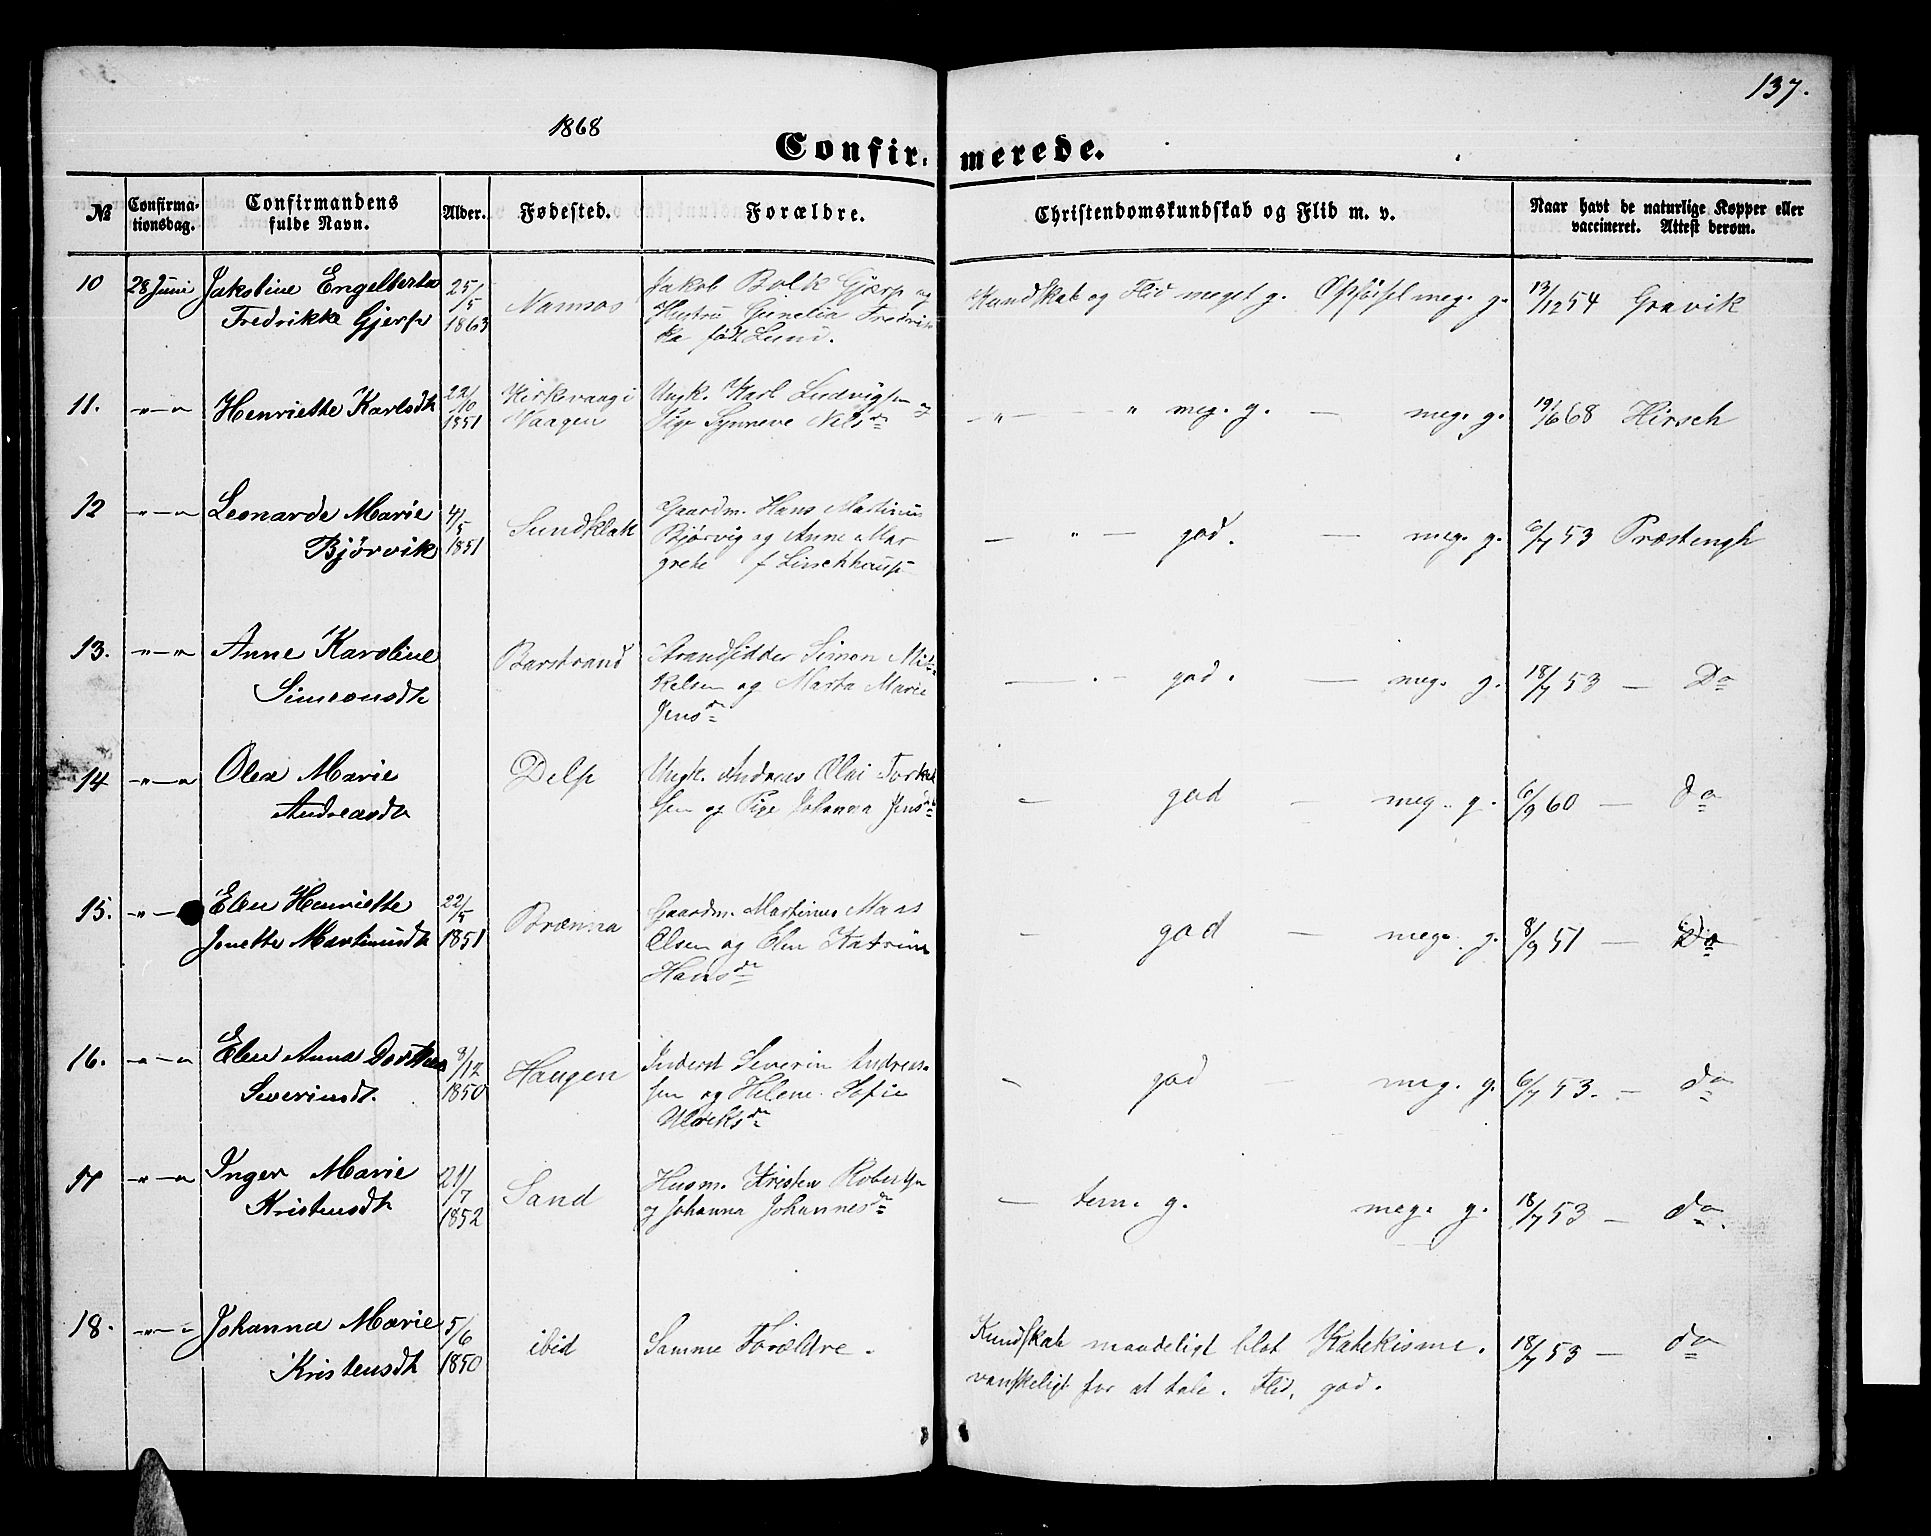 137.
1868
Confir- merede.
№ Confirmationsdag. Confirmandens fulde Navn. Alder. Fødested. Forældre. Christendomskundskab og Flid m. v. Naar havt de naturlige Kopper eller vaccineret. Attest derom.
10 28 Juni Jakobine Engelberta 25/5 Namsos Jakob Bolk Gjerp og Kundskab og Flid meget g. Opførsel meg. g. 13/12 54 Gravik
Fredrikke Gjerp 1863 Hustru Fredrik
ka født Lund.
11. -"-" Henriette Karlsdt 22/10 Kirkevaag i Ungk. Karl Ludvigsen og -"- " meg. g. - meg. g. 19/6 68 Hirsch
1851 Vaagen Pige Synneve Nilsdr
12 -"-" Leonarde Marie 4/5 Sundklak Gaardm. Hans Martinus - " - god. - meg. g. 6/7 53 Præstengh
Bjørvik 1851 Bjørvig og Anne Mar
grete f
13. -"-" Anne Karoline Barstrand Strandsidder Simon Mik god. - meg. g. 18/7 53 - Do
Simeonsdt kelsen og Marta Marie
Jensdr
14 -"-" Olea Marie Delp Ungk. Andreas Olai Torkel - god - meg. g. 6/9 60 - do
Andreasdt sen og Pige Johanna Jensdr
15. -"- Elen Henriette 22/5 Brenna Gaardm. Martinus Maas - god - meg. g. 8/9 51 - Do
Jonette Martinusdt 1851 Olsen og Elen Katrine
Hansdr
16. -"-" Elen Anna Dorthea 8/12 Haugen Inderst Severin Andreas- - god - meg. g. 6/7 53. - do
Severinsdt. 1850 sen og Helene Sofie
Ulriksdr
17 -"-" Inger Marie 21/7 Sand Husm. Kristen Robertsen - tem. g. meg. g. 18/7 53 - do.
Kristensdt 1852 og Johanna Johannesdr
18. -"-" Johanna Marie 5/6 ibid Samme Forældre. Kundskab maadeligt blot Katekisme. 18/7 53 - do
Kristensdt 1850 vanskeligt for at tale. Flid, god.